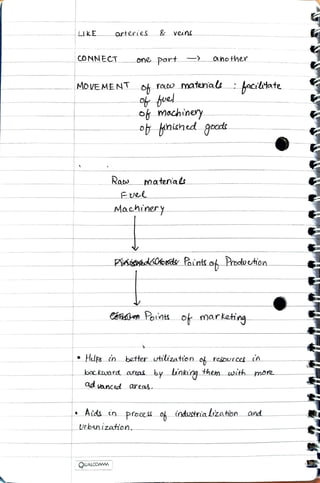 LIKE arteries & veins
CONNECT one part → another
MOVEMENT of raw materials : facilitate
of fuel
of machinery
of finished goods
Raw materials
Fuel
Machinery
Points of Production
Points of marketing
• Helps in better utilization of resources in
backward areas by linking them with more
advanced areas.
• Aids in process of industrialization and
Urbanization.
QUALCOMM